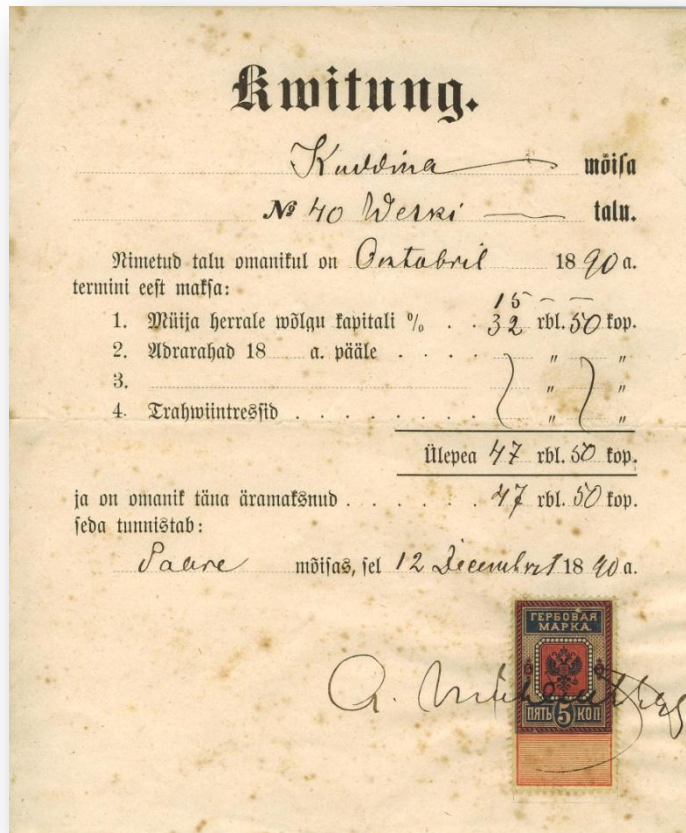 Kwitung.
Kuddina mõisa
№ 40 Werki talu.
Nimetud talu omanikul on Octobril 1890 a.
termini eest maksa:
15 - -
1. Müija herrale wõlgu kapitali % . . 32 rbl. 50 kop.
2. Adrarahad 18 a. pääle . . . . " "
3. " "
4. Trahwiintressid . . . . . . " "
Ülepea 47 rbl. 50 kop.
ja on omanik täna äramaksnud . . . . . . 47 rbl. 50 kop.
seda tunnistab:
Saare mõisas, sel 12 Decembril 1890 a.
ГЕРБОВАЯ
МАРКА
A.
ПЯТЬ 5 КОП